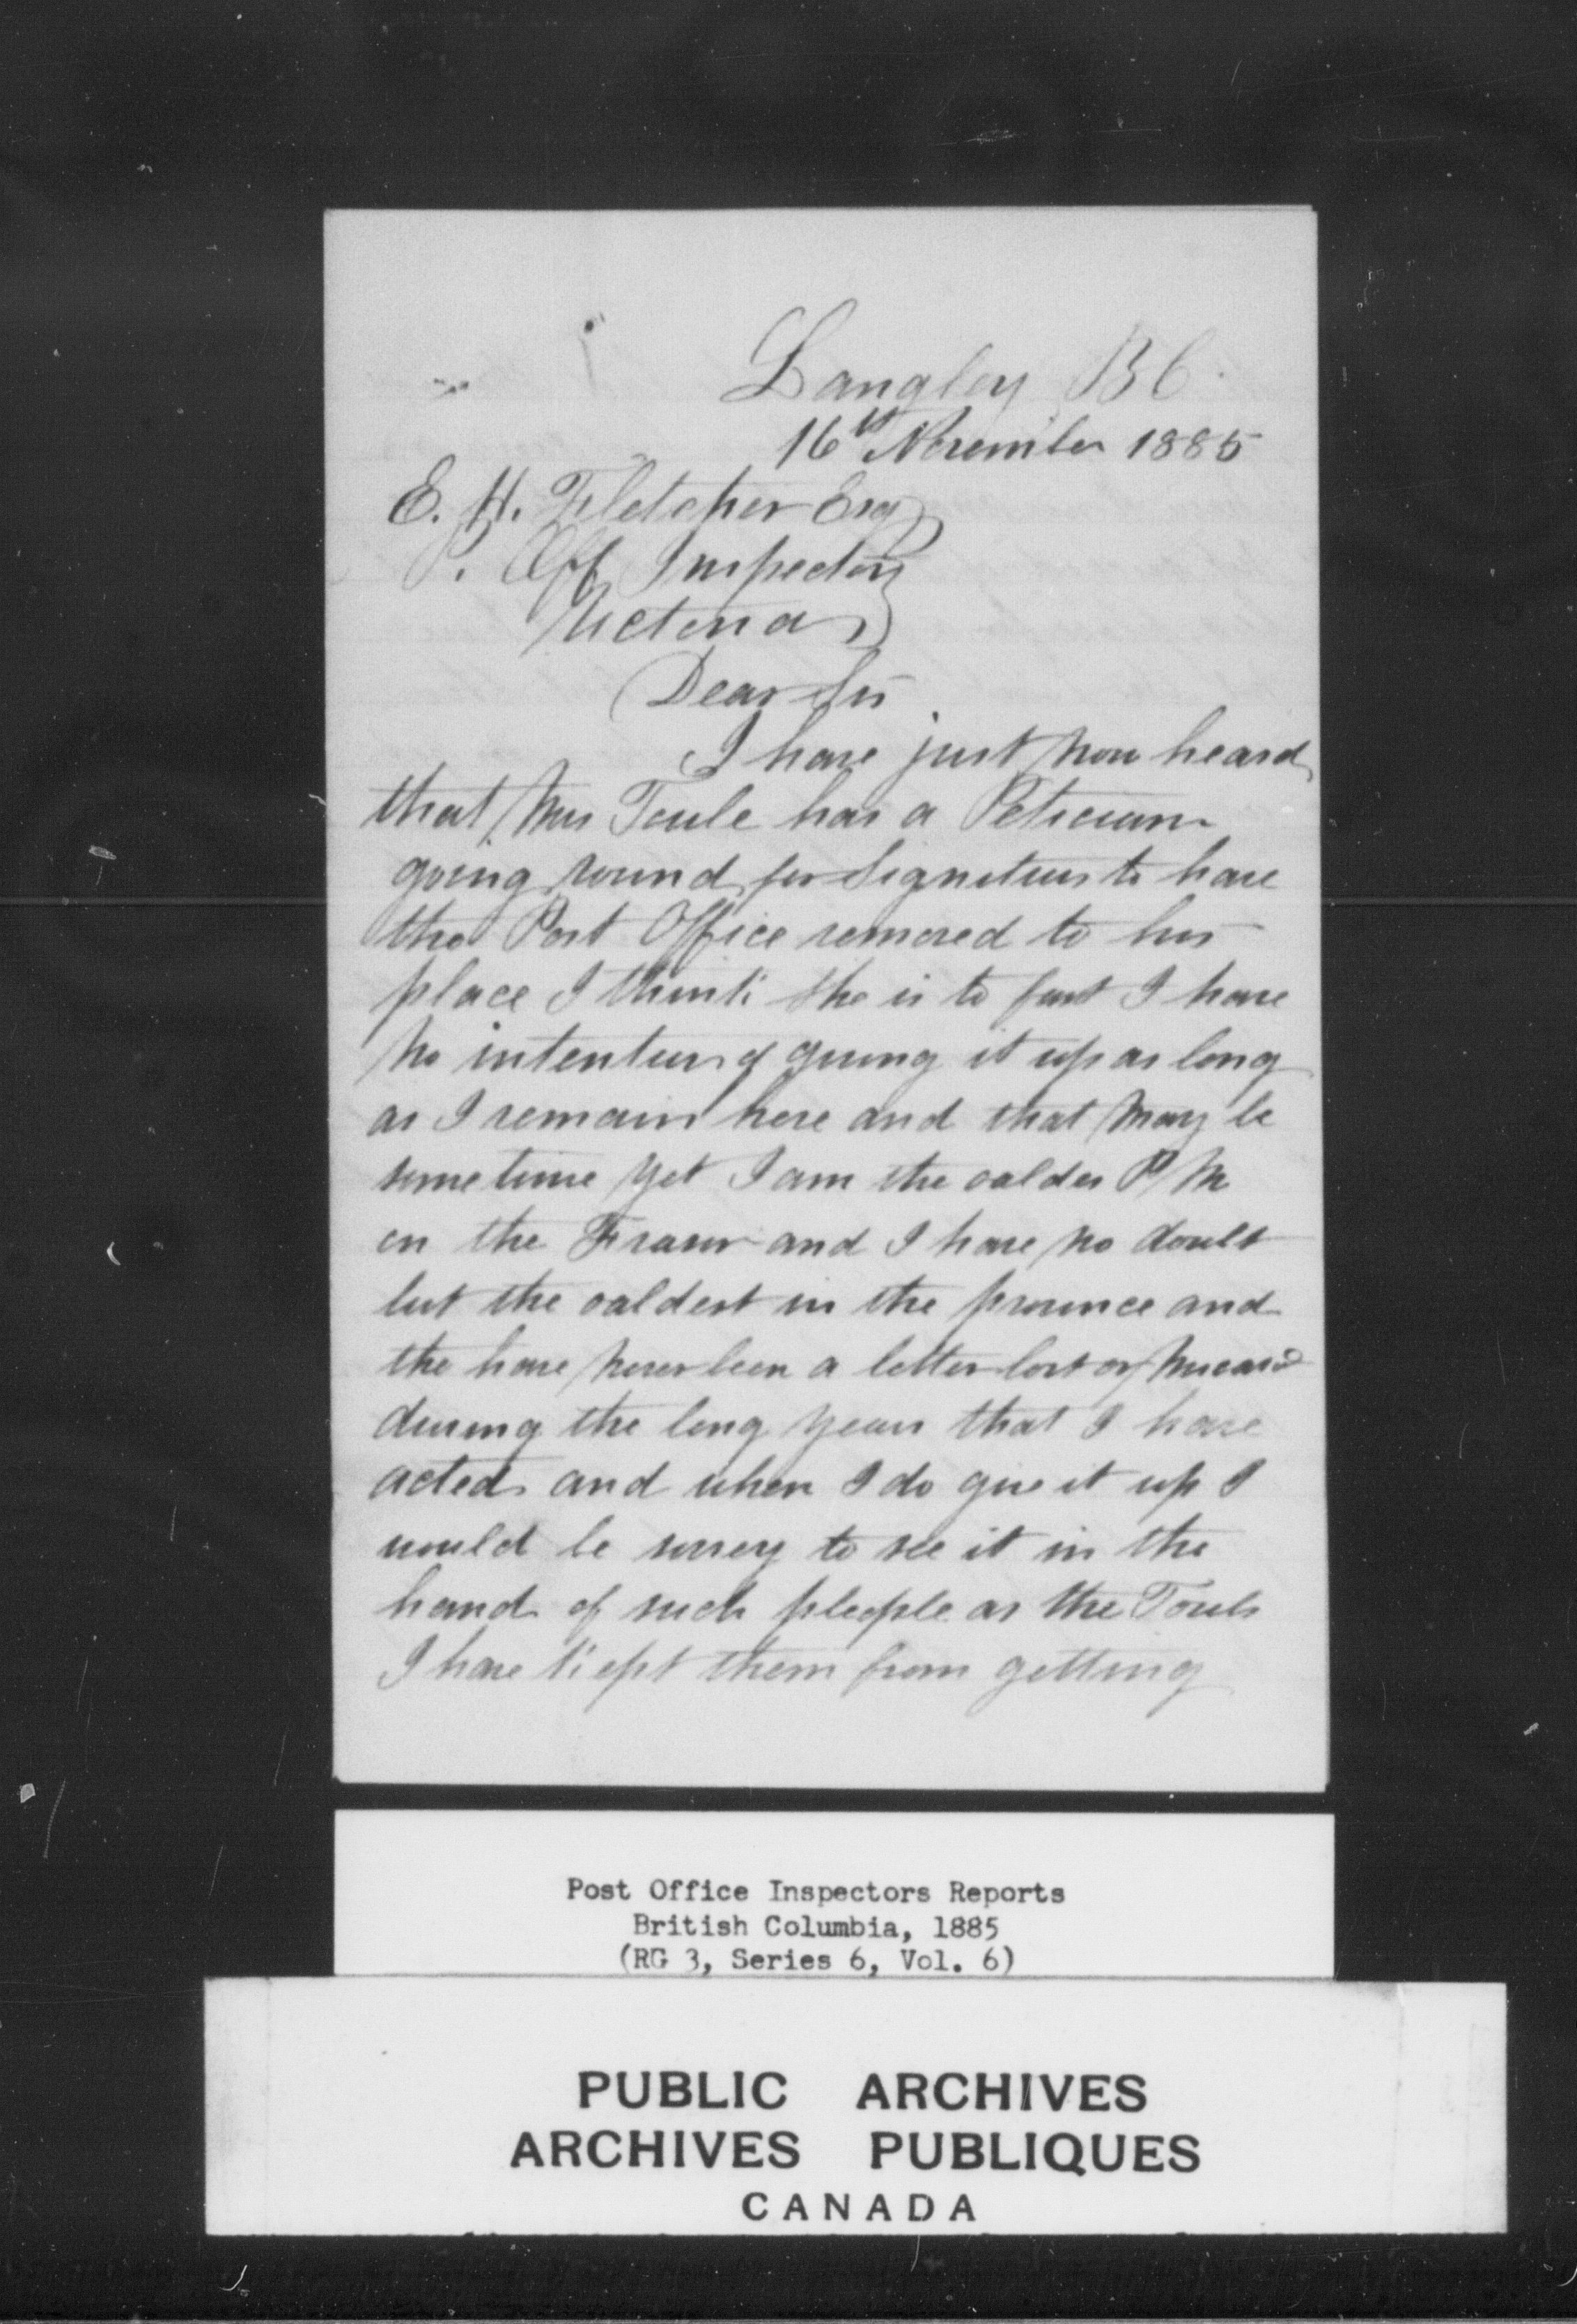 Langley B C.
16th November 1885
E. H. Fletcher Esq
P. Off Inspector
Victoria
Dear Sir
I have just now heard
that Mrs Toule has a
going round for Signetures to have
the Post Office removed to her
place I think She is to fast I have
no intention of giving it up as long
as I remain here and that may be
some time yet I am the oaldes P M
on the Fraser and I have no doubt
but the oaldest in the province and
the have never been a letter lost or
during the long years that I have
acted and when I do give it up I
would be sorrey to see it in the
hand of such pleople as the Touls
I have kept them from getting
Post Office Inspectors Reports
British Columbia, 1885
(RG 3, Series 6, Vol. 6)
PUBLIC ARCHIVES
ARCHIVES PUBLIQUES
CANADA